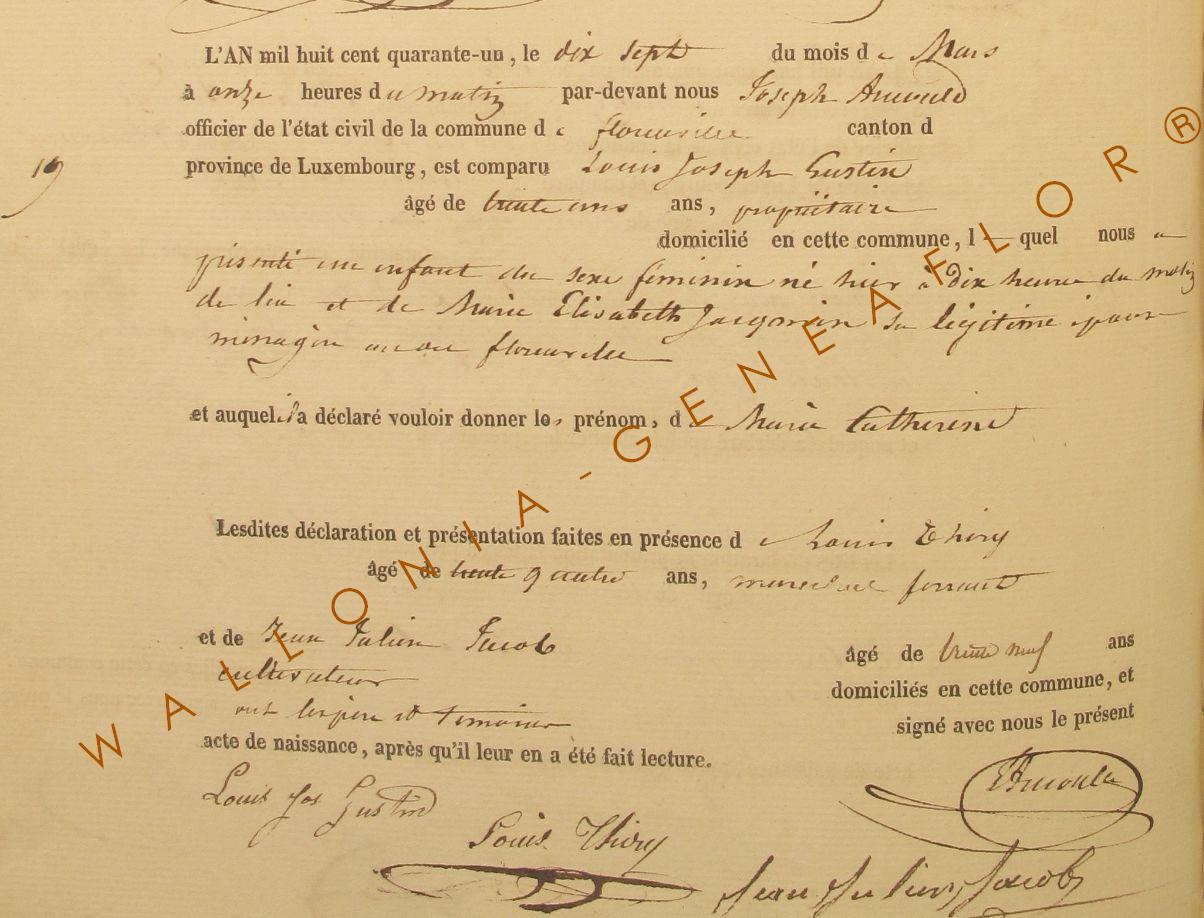 L'AN mil huit cent quarante-un, le dix sept du mois de Mars
à onze heures du matin par-devant nous Joseph Arnould
officier de l'état civil de la commune de florenville canton d
19
province de Luxembourg, est comparu Louis Joseph Gustin
âgé de trente ans ans, propriétaire
domicilié en cette commune, l quel nous a
présenté un enfant du sexe féminin né hier à dix heure du matin
de lui et de Marie Elisabeth Jacqmin sa légitime épouse
ménagère florenville
et auquel il a déclaré vouloir donner les prénom, de Marie Catherine
Lesdites déclaration et présentation faites en présence de Louis Thiry
âgé de trente quatre ans, marechal ferrant
et de Jean Julien Jacob âgé de trente neuf ans
cultivateur domiciliés en cette commune, et
ont les père et temoins signé avec nous le présent
acte de naissance, après qu'il leur en a été fait lecture.
Louis Jos Gustin Arnould
Louis Thiry
Jean Julien Jacob
WALLONIA-GENEAFLOR®